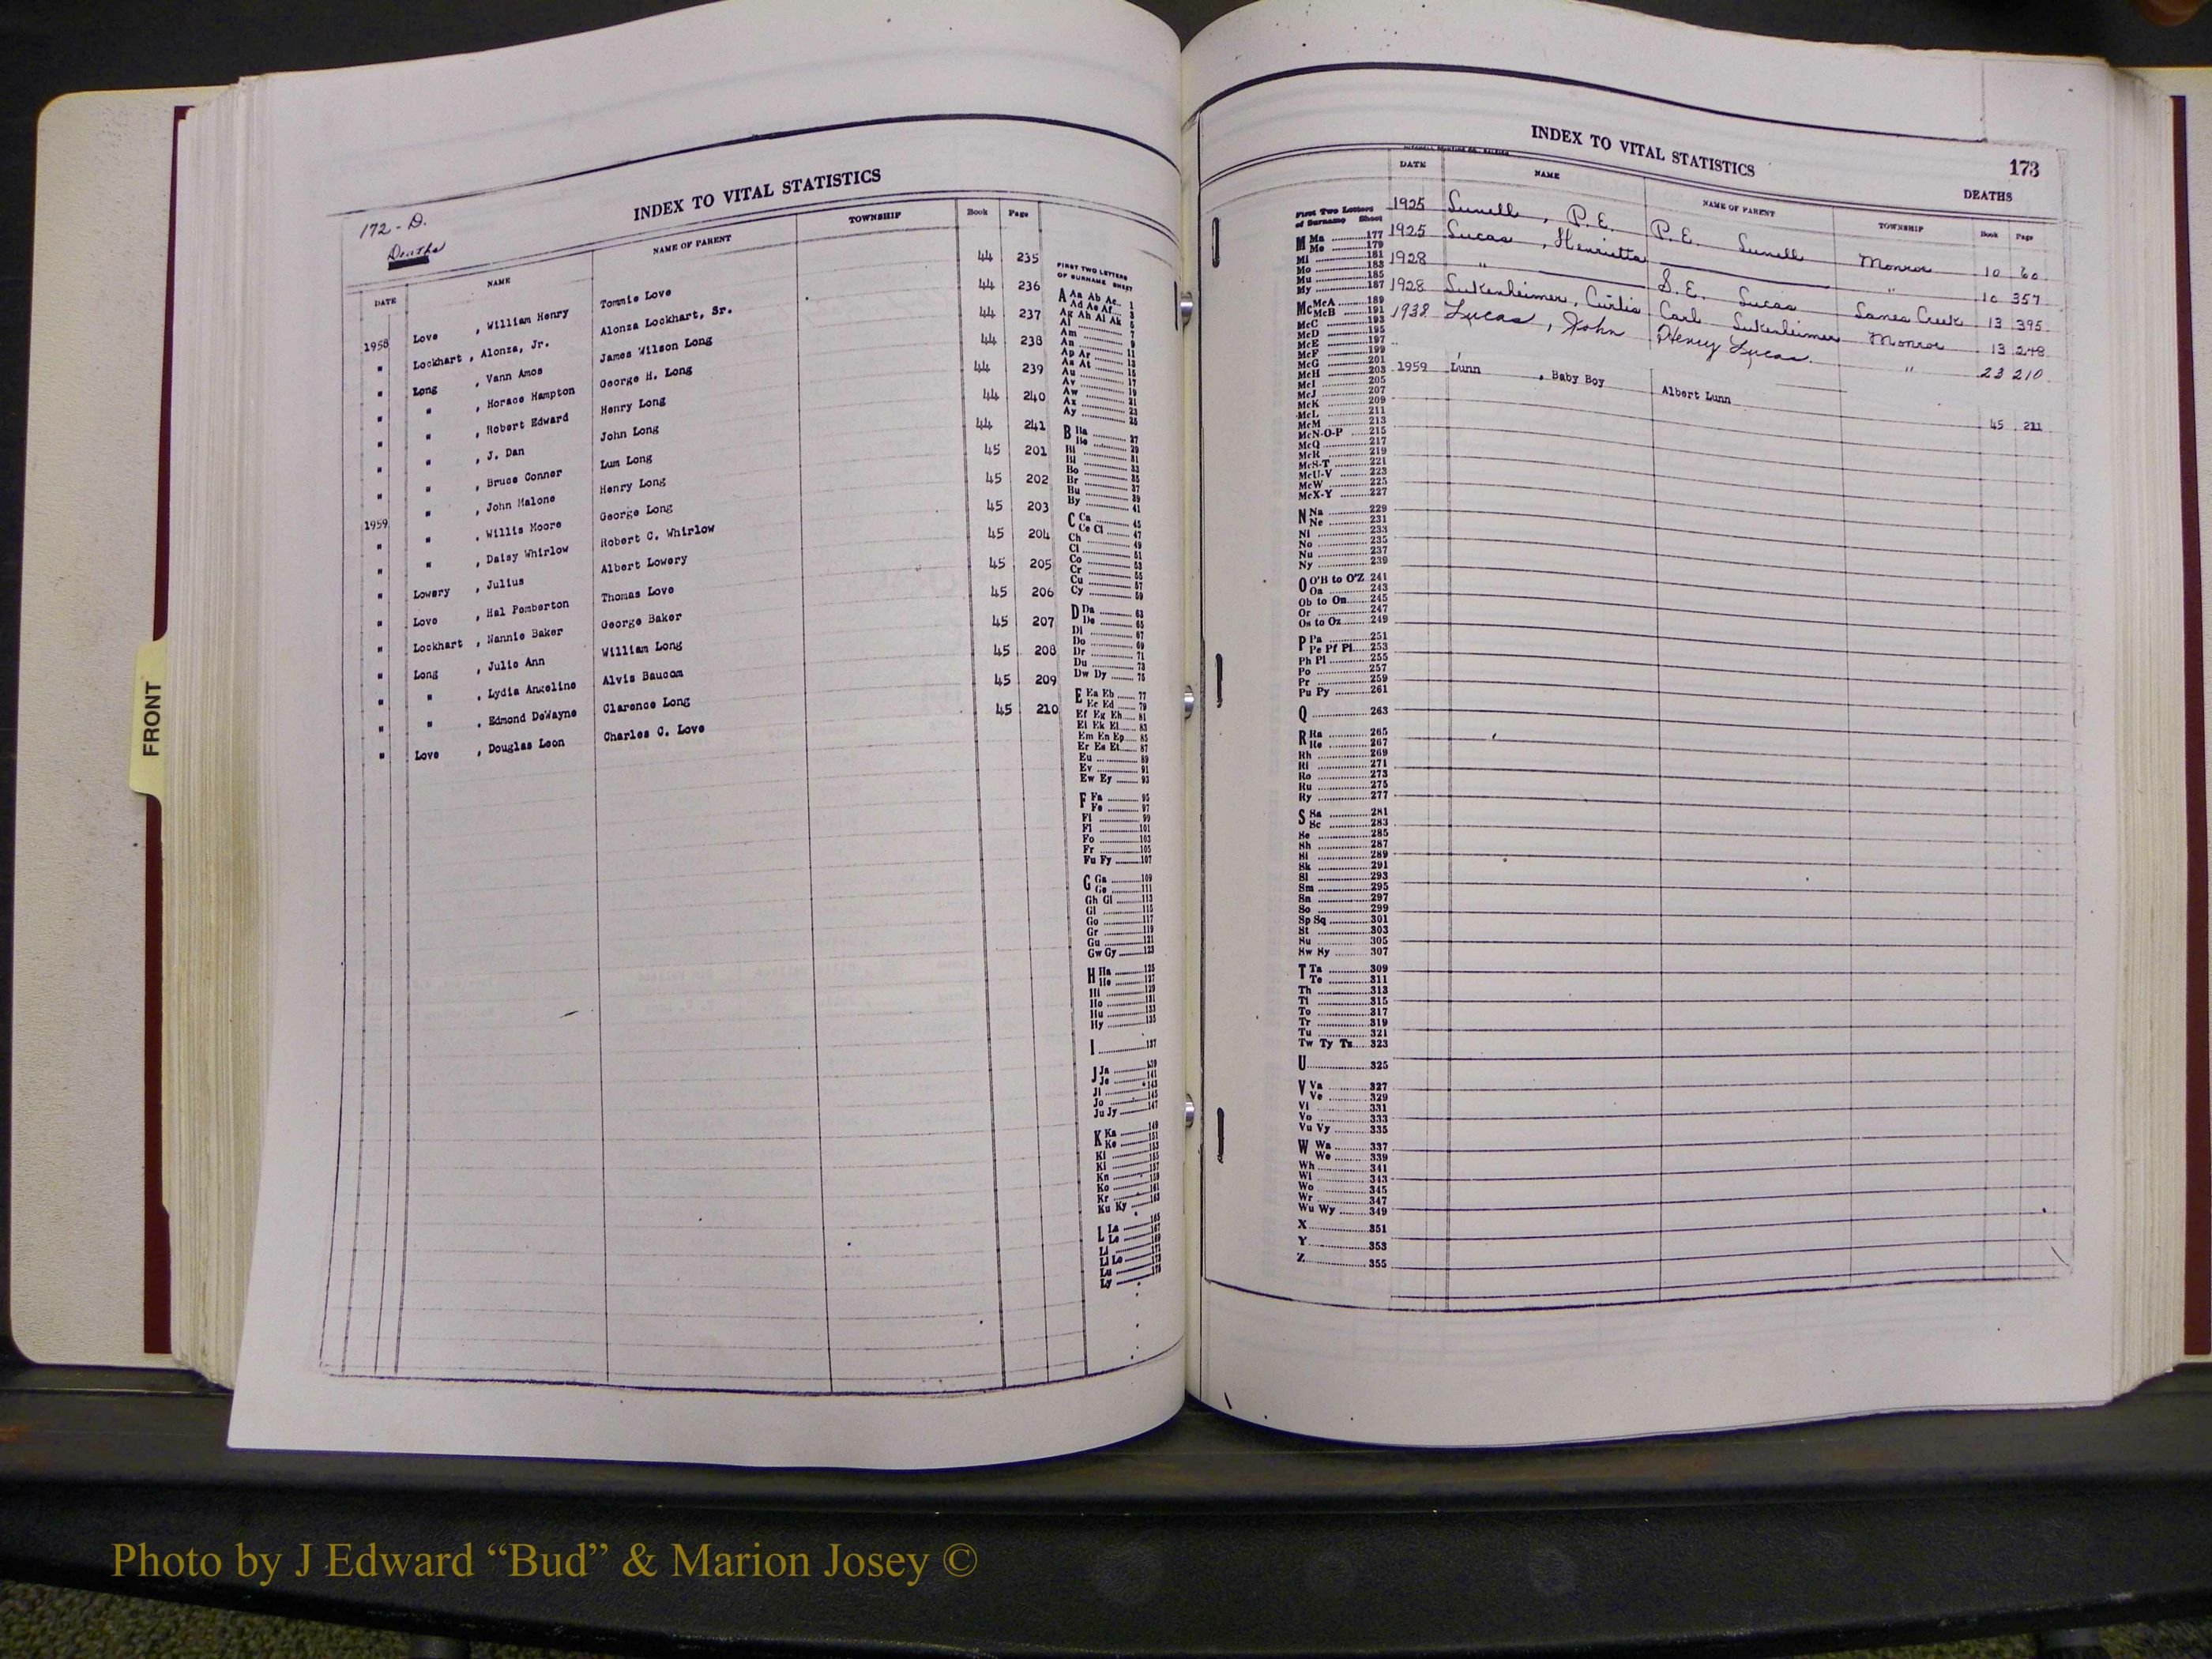 FRONT
172-D.
Deaths
INDEX TO VITAL STATISTICS
DATE NAME NAME OF PARENT TOWNSHIP Book Page
1958 Love , William Henry Tommie Love 44 235
" Lockhart , Alonza, Jr. Alonza Lockhart, Sr. 44 236
" Long , Vann Amos James Wilson Long 44 237
" " , Horace Hampton George H. Long 44 238
" " , Robert Edward Henry Long 44 239
" " , J. Dan John Long 44 240
" " , Bruce Conner Lum Long 44 241
1959 " , John Malone Henry Long 45 201
" " , Willis Moore George Long 45 202
" " , Daisy Whirlow Robert C. Whirlow 45 203
" Lowery , Julius Albert Lowery 45 204
" Love , Hal Pemberton Thomas Love 45 205
" Lockhart , Nannie Baker George Baker 45 206
" Long , Julie Ann William Long 45 207
" " , Lydia Angeline Alvis Baucom 45 208
" " , Edmond DeWayne Clarence Long 45 209
" Love , Douglas Leon Charles C. Love 45 210
FIRST TWO LETTERS
OF SURNAME SHEET
A Aa Ab Ac 1
Ad Ae Af 3
Ag Ah Ai Ak 5
Al 7
Am 9
An 11
Ap Ar 13
As At 15
Au 17
Av 19
Aw 21
Ax 23
Ay 25
B Ba 27
Be 29
Bi 31
Bl 33
Bo 35
Br 37
Bu 39
By 41
C Ca 45
Ce Ci 47
Ch 49
Cl 51
Co 53
Cr 55
Cu 57
Cy 59
D Da 63
De 65
Di 67
Do 69
Dr 71
Du 73
Dw Dy 75
E Ea Eb 77
Ec Ed 79
Ef Eg Eh 81
Ei Ek El 83
Em En Ep 85
Er Es Et 87
Eu 89
Ev 91
Ew Ey 93
F Fa 95
Fe 97
Fi 99
Fl 101
Fo 103
Fr 105
Fu Fy 107
G Ga 109
Ge 111
Gh Gi 113
Gl 115
Go 117
Gr 119
Gu 121
Gw Gy 123
H Ha 125
He 127
Hi 129
Ho 131
Hu 133
Hy 135
I 137
J Ja 139
Je 141
Ji 143
Jo 145
Ju Jy 147
K Ka 149
Ke 151
Ki 153
Kl 155
Kn 157
Ko 159
Kr 161
Ku Ky 163
L La 165
Le 167
Li 169
Ll Lo 171
Lu 173
Ly
INDEX TO VITAL STATISTICS 173
DEATHS
DATE NAME NAME OF PARENT TOWNSHIP Book Page
1925 Lunell, P. E. P. E. Lunell Monroe 10 60
1925 Lucas, Henrietta " 10 357
1928 " S. E. Lucas Lanes Creek 13 395
1928 Lukenheimer, Curtis Carl Lukenheimer Monroe 13 248
1938 Lucas, John Henry Lucas " 23 210
1959 Lunn , Baby Boy Albert Lunn 45 211
First Two Letters
of Surname Sheet
M Ma 177
Me 179
Mi 181
Mo 183
Mu 185
My 187
Mc McA 189
McB 191
McC 193
McD 195
McE 197
McF 199
McG 201
McH 203
McI 205
McJ 207
McK 209
McL 211
McM 213
McN-O-P 215
McQ 217
McR 219
McS-T 221
McU-V 223
McW 225
McX-Y 227
N Na 229
Ne 231
Ni 233
No 235
Nu 237
Ny 239
O O'B to O'Z 241
Oa 243
Ob to On 245
Or 247
Os to Oz 249
P Pa 251
Pe Pf Pi 253
Ph Pl 255
Po 257
Pr 259
Pu Py 261
Q 263
R Ra 265
Re 267
Rh 269
Ri 271
Ro 273
Ru 275
Ry 277
S Sa 281
Sc 283
Se 285
Sh 287
Si 289
Sk 291
Sl 293
Sm 295
Sn 297
So 299
Sp Sq 301
St 303
Su 305
Sw Sy 307
T Ta 309
Te 311
Th 313
Ti 315
To 317
Tr 319
Tu 321
Tw Ty Tz 323
U 325
V Va 327
Ve 329
Vi 331
Vo 333
Vu Vy 335
W Wa 337
We 339
Wh 341
Wi 343
Wo 345
Wr 347
Wu Wy 349
X 351
Y 353
Z 355
Photo by J Edward “Bud” & Marion Josey ©